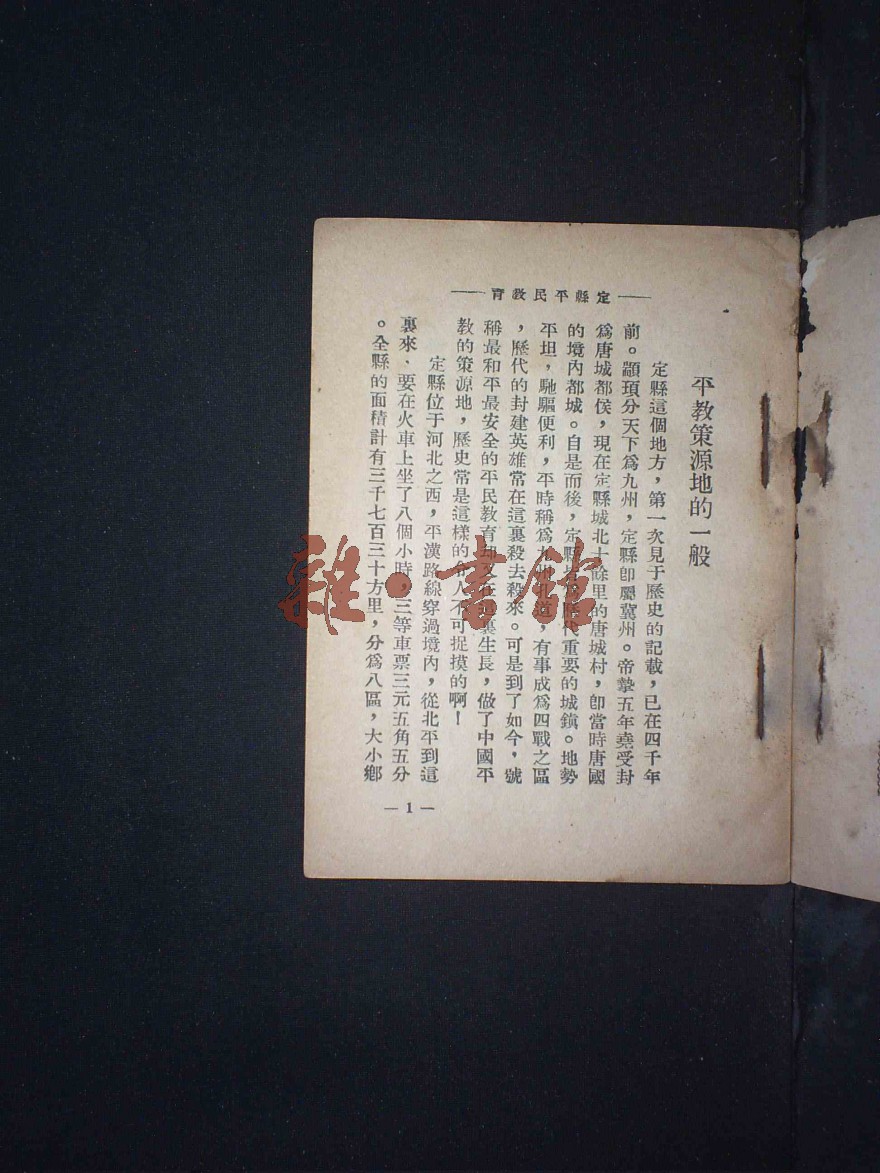 定縣平民教育
平教策源地的一般
定縣這個地方，第一次見于歷史的記載，已在四千年
前。顓頊分天下爲九州，定縣卽屬冀州。帝摯五年堯受封
爲唐城都侯，現在定縣城北十餘里的唐城村，卽當時唐國
的境內都城。自是而後，定縣代重要的城鎮。地勢
平坦，馳驅便利，平時稱爲九州孔道，有事成爲四戰之區
，歷代的封建英雄常在這裏殺去殺來。可是到了如今，號
稱最和平最安全的平民教育却又在這裏生長，做了中國平
教的策源地，歷史常是這樣的令人不可捉摸的啊！
定縣位于河北之西，平漢路線穿過境內，從北平到這
裏來、要在火車上坐了八個小時，三等車票三元五角五分
。全縣的面積計有三千七百三十方里，分爲八區，大小鄉
— 1 —
雜·書館